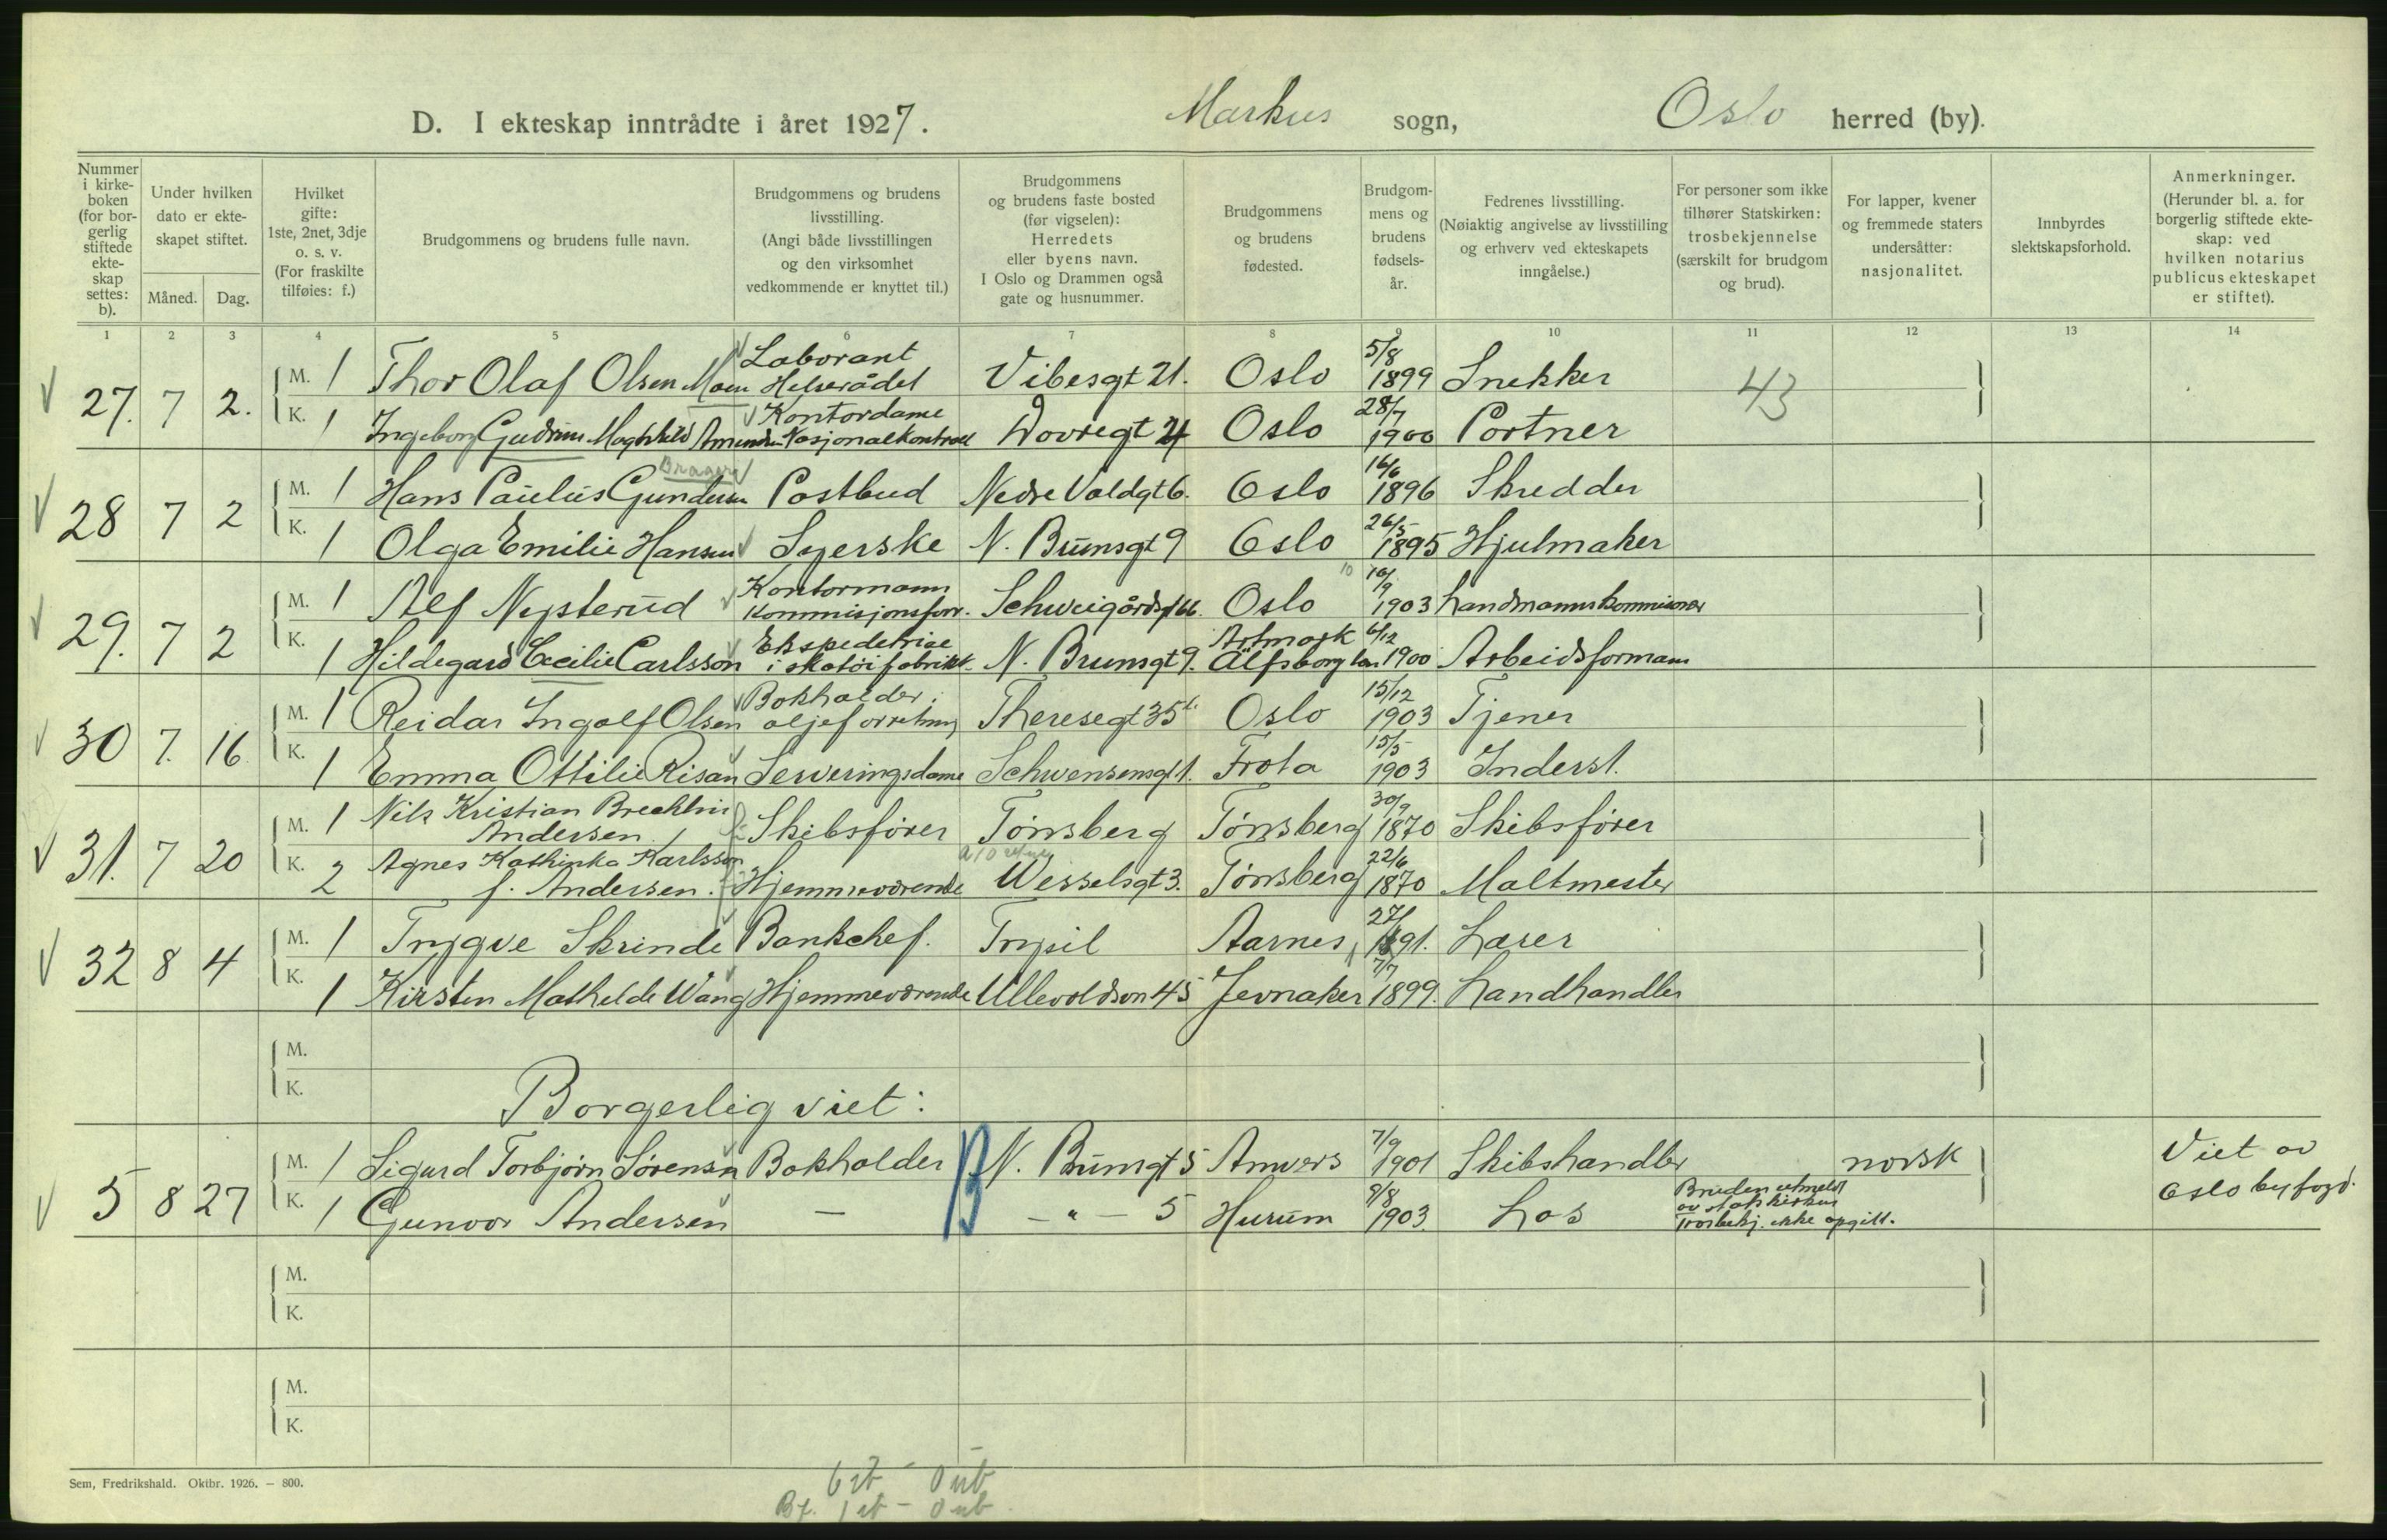 D. I ekteskap inntrådte i året 1927. Markus sogn, Oslo herred (by).
Nummer i kirke-boken (for bor-gerlig stiftede ekte-skap settes: b).
Under hvilken dato er ekte-skapet stiftet.
Måned. Dag.
Hvilket gifte: 1ste, 2net, 3dje o. s. v. (For fraskilte tilføies: f.)
Brudgommens og brudens fulle navn.
Brudgommens og brudens livsstilling. (Angi både livsstillingen og den virksomhet vedkommende er knyttet til.)
Brudgommens og brudens faste bosted (før vigselen): Herredets eller byens navn. I Oslo og Drammen også gate og husnummer.
Brudgommens og brudens fødested.
Brudgom-mens og brudens fødsels-år.
Fedrenes livsstilling. (Nøiaktig angivelse av livsstilling og erhverv ved ekteskapets inngåelse.)
For personer som ikke tilhører Statskirken: trosbekjennelse (særskilt for brudgom og brud).
For lapper, kvener og fremmede staters undersåtter: nasjonalitet.
Innbyrdes slektskapsforhold.
Anmerkninger. (Herunder bl. a. for borgerlig stiftede ekte-skap: ved hvilken notarius publicus ekteskapet er stiftet).
1 2 3 4 5 6 7 8 9 10 11 12 13 14
27. 7 2. M. 1 Thor Olaf Olsen Moen Laborant Helserådet Vibesgt 21. Oslo 5/8 1899 Snekker 43
K. 1 Ingeborg Gudrun Maghild Kontordame Nasjonalkontroll Dovregt 4 Oslo 28/7 1900 Portner
28 7 2 M. 1 Hans Paulus Gundersen Postbud Nedre Voldgt 6. Oslo 16/6 1896 Skredder
K. 1 Olga Emilie Hansen Syerske N. Brunsgt 9 Oslo 26/5 1895 Hjulmaker
29. 7 2 M. 1 Alf Nysterud Kontormann Kommisjonsforr. Schweigårdsgt 66. Oslo 16/9 1903 Landmannskommisionær
K. 1 Hildegard Cecilie Carlsson Ekspeditrice i skotøifabrikk. N. Brunsgt 9. Artmark Älfsborg län 6/12 1900 Arbeidsformann
30 7. 16 M. 1 Reidar Ingolf Olsen Bokholder i oljeforretning Theresegt 35 b. Oslo 15/12 1903 Tjener
K. 1 Emma Ottilie Risan Serveringsdame Schwensensgt 1. Frosta 15/5 1903 Inderst.
31. 7 20 M. 1 Nils Kristian Brechlin Andersen Skibsfører Tønsberg Tønsberg 30/9 1870 Skibsfører
K. 2 Agnes Kathinka Karlsson f. Andersen. Hjemmeværende Wesselsgt 3. Tønsberg 22/6 1870 Maltmester
32 8 4 M. 1 Trygve Skrinde Bankchef. Trysil Aarnes 27/1 1891. Lærer
K. 1 Kirsten Mathilde Wang Hjemmeværende Ullevoldsvn 45 Jevnaker 7/7 1899. Landhandler
M.
K.
Borgerlig viet:
5 8 27 M. 1 Sigurd Torbjørn Sørensen Bokholder B N. Brunsgt 5 Anvers 7/9 1901 Skibshandler norsk Viet av Oslo byfogd.
K. 1 Gunvor Andersen — — " — 5 Hurum 8/8 1903. Los Bruden utmeldt av statskirken Trosbekj. ikke opgitt.
M.
K.
M.
K.
Sem, Fredrikshald. Oktbr. 1926. — 800.